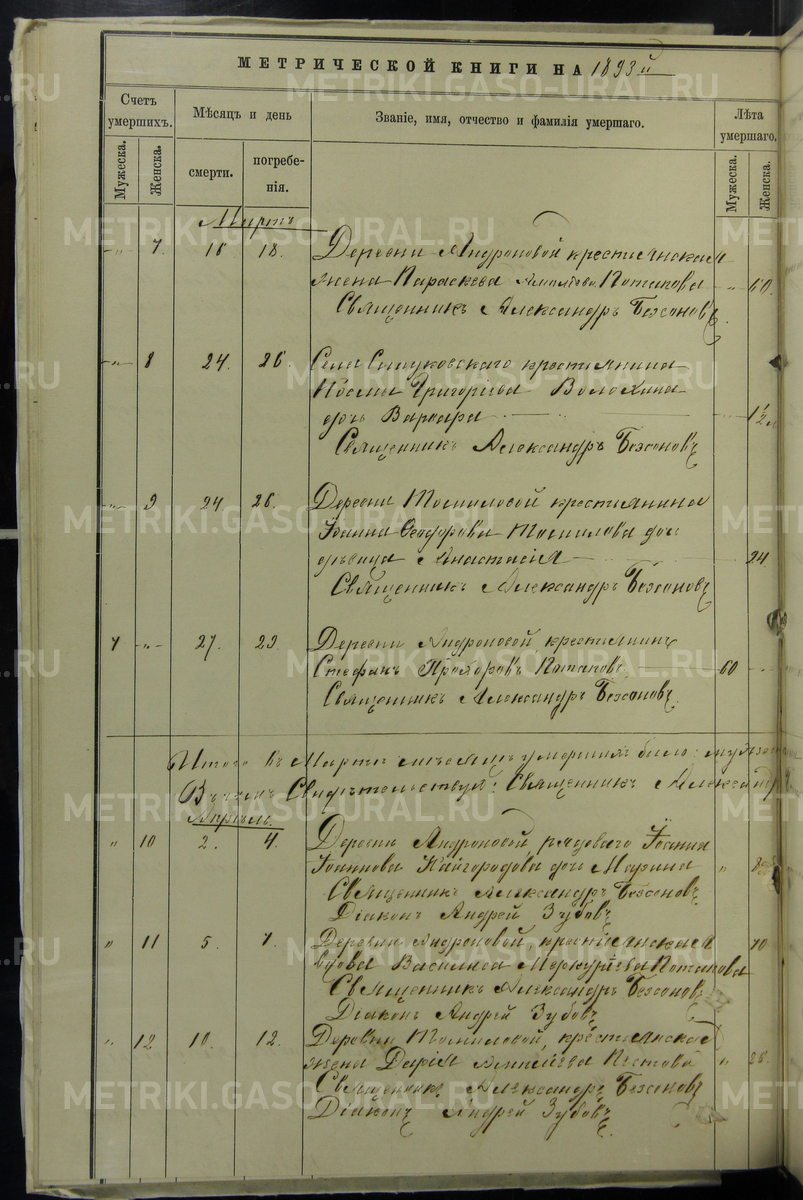 МЕТРИЧЕСКОЙ КНИГИ НА 1893й
Счетъ умершихъ.
Мѣсяцъ и день
Званіе, имя, отчество и фамилія умершаго.
Лѣта умершаго.
Мужеска.
Женска.
смерти.
погребенія.
Мужеска.
Женска.
Мартъ
" 7. 16 18. Деревни Андроновой крестьянская
жена Параскева Потапова " 60.
Священникъ Александръ Безсоновъ
" 8 24. 26. Села крестьянина
Григоріева Волохина
дочь Варвара 1½
Священникъ Александръ Безсоновъ
" 9 24 26. Деревни Томиловой крестьянина
Іоанна Ѳеодорова Томилова дочь
дѣвица Анастасія 24
Священникъ Александръ Безсоновъ
4 " 27. 29. Деревни Андроновой крестьянинъ
Стефанъ Прохоровъ Потаповъ 60
Священникъ Александръ Безсоновъ
Итого въ Мартѣ мѣсяцѣ умершихъ было:
Въ чемъ Свидѣтельствуемъ: Священникъ Александръ
Апрѣль.
" 10 2. 4. Деревни Андроновой, рядоваго Іоанна
Іоаннова Кайгородова дочь Марина "
Священникъ Александръ Безсоновъ
Діаконъ Андрей Зубовъ
" 11 5. 7. Деревни Андроновой, крестьянская
вдова Василиса Меркуріева Потапова 70
Священникъ Александръ Безсоновъ
Діаконъ Андрей Зубовъ
" 12 10. 12. Деревни Томиловой, крестьянская
жена Дарія "
Священникъ Александръ Безсоновъ
Діаконъ Андрей Зубовъ
METRIKI.GASO-URAL.RU